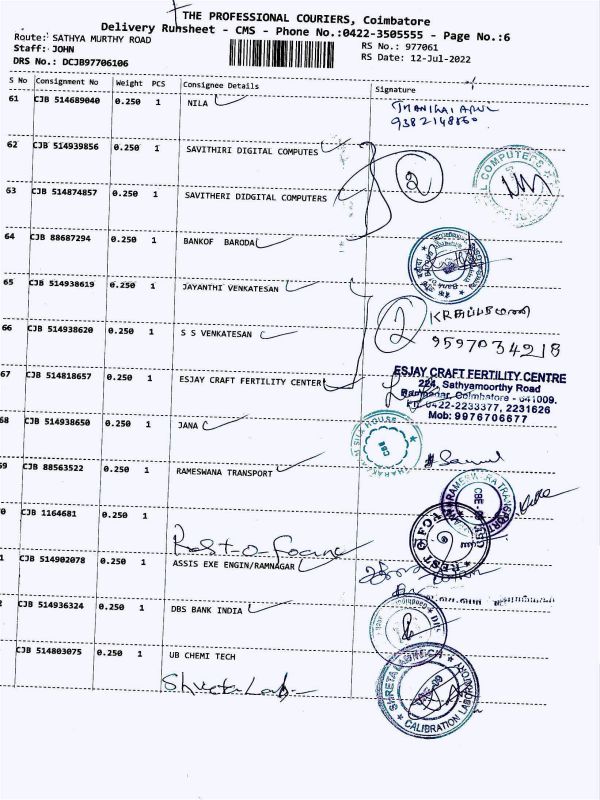 THE PROFESSIONAL COURIERS, Coimbatore
Delivery Runsheet - CMS - Phone No.:0422-3505555 - Page No.:6
Route: SATHYA MURTHY ROAD
Staff: JOHN
DRS No.: DCJB97706106
RS No.: 977061
RS Date: 12-Jul-2022
S No Consignment No Weight PCS Consignee Details Signature
61 CJB 514689040 0.250 1 NILA
9382148860
62 CJB 514939856 0.250 1 SAVITHIRI DIGITAL COMPUTES
2
COMPUTERS
63 CJB 514874857 0.250 1 SAVITHERI DIDGITAL COMPUTERS
64 CJB 88687294 0.250 1 BANKOF BARODA
65 CJB 514938619 0.250 1 JAYANTHI VENKATESAN
2
9597034218
66 CJB 514938620 0.250 1 S S VENKATESAN
67 CJB 514818657 0.250 1 ESJAY CRAFT FERTILITY CENTER
ESJAY CRAFT FERTILITY CENTRE
224, Sathyamoorthy Road
Ramnagar, Coimbatore - 641009.
0422-2233377, 2231626
Mob: 9976706677
68 CJB 514938650 0.250 1 JANA
SILK HOUSE
CBE
9 CJB 88563522 0.250 1 RAMESWANA TRANSPORT
RAMESWARA TRANSPORT
CBE - 09
0 CJB 1164681 0.250 1
Rest-o-Foam
REST O FOAM
1 CJB 514902078 0.250 1 ASSIS EXE ENGIN/RAMNAGAR
2 CJB 514936324 0.250 1 DBS BANK INDIA
CJB 514803075 0.250 1 UB CHEMI TECH
Shreta Lab
SHRETA LABTECH
CALIBRATION LABORATORY